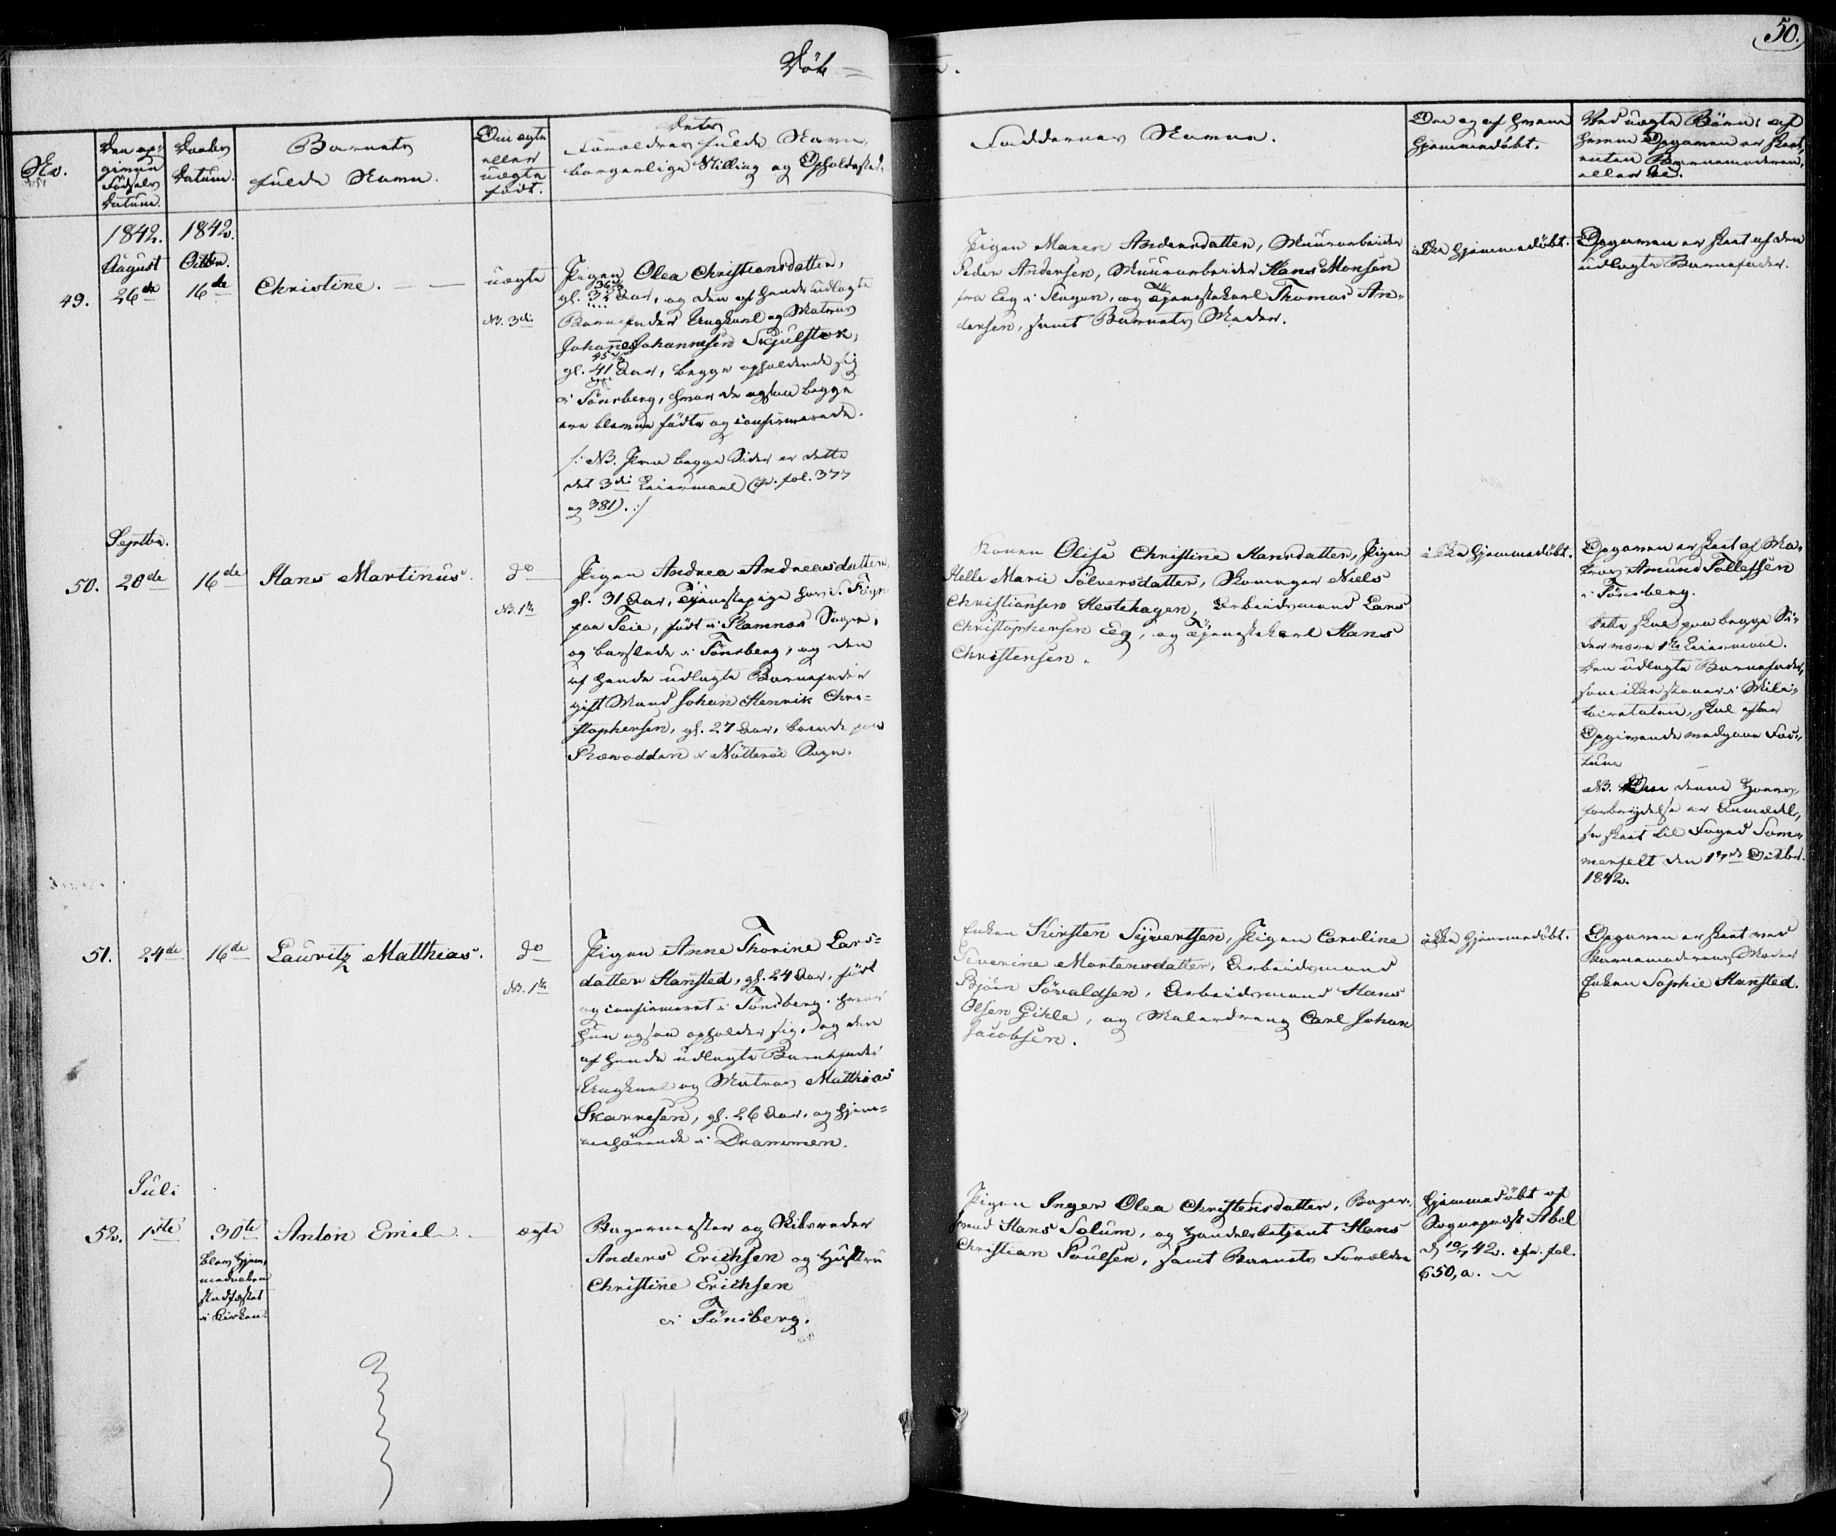 Døb =
50.
No.
Den op-
givne
Fødsels
Datum.
Daabs
Datum.
Barnets
fulde Navn.
Om ægte
eller
uægte
født.
Dets
Forældres fulde Navn,
borgerlige Stilling og Opholdssted.
Faddernes Navne.
Om og af hvem
hjemmedøbt.
Ved uægte Børn: af
hvem Opgaven er skeet,
enten Barnemoderen,
eller
1842.
August
26de
1842.
Octbr.
16de
49.
Christine.
uægte
NB. 3die
Pigen Olea Christiansdatter,
gl. Aar, og den af hende udlagte
Barnefader Ungkarl og Matros
Johannes Johannesen
gl. 41 Aar, begge opholdende sig
i Tönsberg, hvor de ogsaa begge
ere blevne födte og confirmerede.
/: NB. Paa begge Sider er dette
det 3die Leiermaal (cfr. fol. 377
og 381). :/
Pigen Maren Andersdatter, Muurarbeider
Peder Andersen, Muurarbeider Hans Monsen
fra Eeg i Slagen, og Tjenestekarl Thomas An-
dersen, samt Barnets Moder.
ikke hjemmedøbt.
Opgaven er skeet af den
udlagte Barnefader.
Septbr.
50.
20de
16de
Hans Martinus.
do
NB. 1te
Pigen Andrea Andreasdatter,
gl. 31 Aar, Tjenestepige hos
paa Teie, født i Stamnæs Sogn,
og barslede i Tönsberg, og den
af hende udlagte Barnefader
gift Mand Johan Henrik Chri-
stophersen, gl. 27 Aar, boende paa
i Nötteröe Sogn.
Konen Olise Christine Hansdatter, Pigen
Helle Marie Sölversdatter, Skomager Niels
Christiansen Hestehagen, Arbeidsmand Lars
Christophersen Eeg, og Tjenestekarl Hans
Christensen.
ikke hjemmedøbt.
Opgaven er skeet af Ma-
tros Amund Tollefsen
i Tönsberg.
Dette skal paa begge Si-
der være 1ste Leiermaal.
Den udlagte Barnefader,
som ikke staaer i Mili-
tairetaten, skal efter
Opgivende
NB. Om denne Hoers-
forbrydelse er Anmeldel-
se skeet til Foged Som-
merfelt den 17de Octbr.
1842.
51.
24de
16de
Lauritz Matthias.
do
NB. 1te
Pigen Anne Thorine Lars-
datter Hansted, gl. 24 Aar, født
og confirmeret i Tönsberg, hvor
hun ogsaa opholder sig, og den
af hende udlagte Barnefader
Ungkarl og Matros Matthias
Skarresen, gl. 26 Aar, og hjem-
mehörende i Drammen.
Enken Kirsten Syvertsen, Pigen Caroline
Severine Mortensdatter, Arbeidsmand
Björn Törvaldsen, Arbeidsmand Hans
Olsen Gihle, og Malerdreng Carl Johan
Jacobsen.
ikke hjemmedøbt.
Opgaven er skeet ved
Barnemoderens Moder
Enken Sophie Hansted.
Juli
52.
1ste
30te
blev hjem-
medaaben
stadfæstet
i Kirken.
Anton Emil
ægte
Bagermester og Skibsreder
Anders Erichsen og Hustru
Christine Erichsen
i Tönsberg.
Pigen Inger Olea Christensdatter, Bager-
svend Hans Solum, og Handelsbetjent Hans
Christian Paulsen, samt Barnets Forældre
Hjemmedøbt af
Sognepræst Abel
d. 10/7 42. cfr. fol.
650, a.